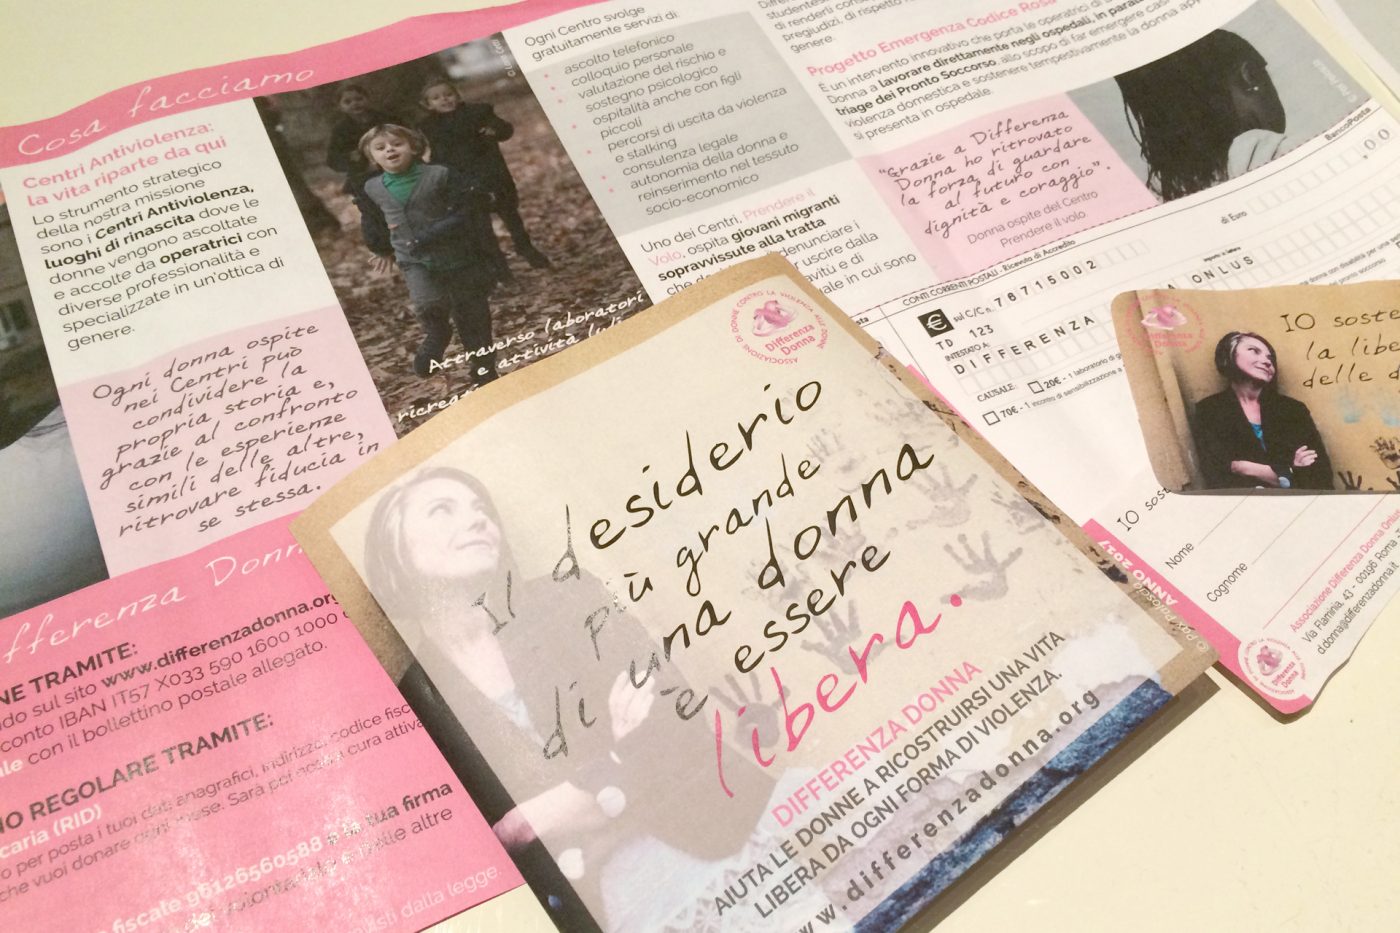 Cosa facciamo
Centri Antiviolenza:
la vita riparte da qui
Lo strumento strategico
della nostra missione
sono i Centri Antiviolenza,
luoghi di rinascita dove le
donne vengono ascoltate
e accolte da operatrici con
diverse professionalità e
specializzate in un'ottica di
genere.
Ogni donna ospite
nei Centri può
condividere la
propria storia e,
grazie al confronto
con le esperienze
simili delle altre,
ritrovare fiducia in
se stessa.
Attraverso laboratori
e attività
Ogni Centro svolge
gratuitamente servizi di:
ascolto telefonico
colloquio personale
valutazione del rischio e
sostegno psicologico
ospitalità anche con figli
piccoli
percorsi di uscita da violenza
e stalking
consulenza legale
autonomia della donna e
reinserimento nel tessuto
socio-economico
Uno dei Centri, Prendere il
Volo, ospita giovani migranti
sopravvissute alla tratta
denunciare i
uscire dalla
e di
in cui sono
pregiudizi, di rispetto
genere.
Progetto Emergenza Codice Rosa
È un intervento innovativo che porta le operatrici di
Donna a lavorare direttamente negli ospedali, in
triage dei Pronto Soccorso, allo scopo di far emergere
violenza domestica e sostenere tempestivamente la donna
si presenta in ospedale.
"Grazie a Differenza
Donna ho ritrovato
la forza di guardare
al futuro con
dignità e coraggio".
Donna ospite del Centro
Prendere il volo
BancoPosta
CONTI CORRENTI POSTALI - Ricevuta di Accredito
€ sul C/C n. 78715002
di Euro
TD 123
INTESTATO A:
DIFFERENZA
ONLUS
CAUSALE:
20€ - 1 laboratorio di
70€ - 1 incontro di sensibilizzazione a
IO
la
delle
IO
Nome
Cognome
ANNO 2017
Associazione Differenza Donna Onlus
Via Flaminia, 43 - 00196 Roma
d.donna@differenzadonna.it
Differenza
Donna
Donna
TRAMITE:
sul sito www.differenzadonna.org
conto IBAN IT57 X033 590 1600 1000
con il bollettino postale allegato.
REGOLARE TRAMITE:
(RID)
per posta i tuoi dati anagrafici, indirizzo, codice
che vuoi donare ogni mese. Sarà poi nostra cura
96126560588 e la tua firma
dalla legge.
ASSOCIAZIONE DI DONNE CONTRO LA VIOLENZA ALLE DONNE
Differenza
Donna
Il desiderio
più grande
di una donna
è essere
libera.
DIFFERENZA DONNA
AIUTA LE DONNE A RICOSTRUIRSI UNA VITA
LIBERA DA OGNI FORMA DI VIOLENZA.
www.differenzadonna.org